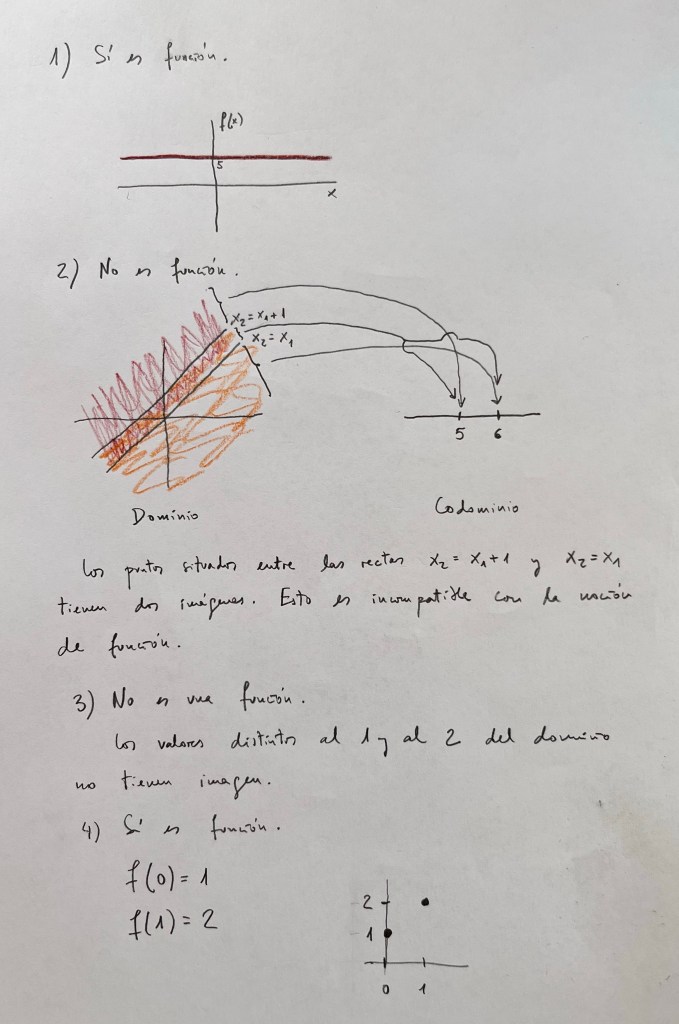 1) Sí es función.
f(x)
5
x
2) No es función.
x₂ = x₁ + 1
x₂ = x₁
5 6
Dominio Codominio
Los puntos situados entre las rectas x₂ = x₁+1 y x₂ = x₁
tienen dos imágenes. Esto es incompatible con la noción
de función.
3) No es una función.
Los valores distintos al 1 y al 2 del dominio
no tienen imagen.
4) Sí es función.
f(0) = 1
f(1) = 2
2
1
0 1